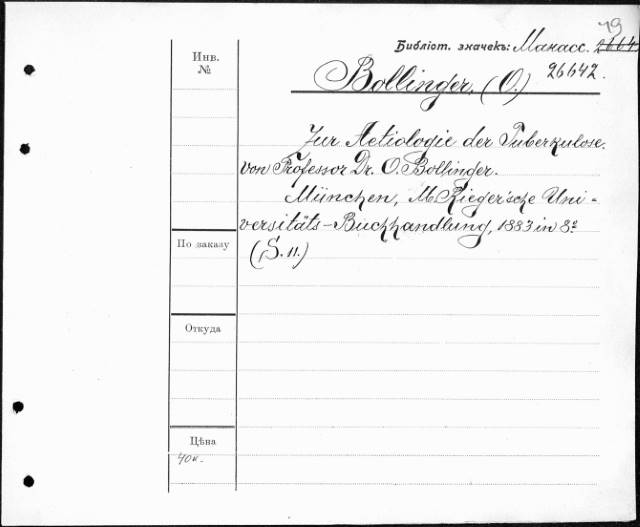 79
Библіот. значекъ: Манасс. 2664
26642.
Инв.
№
Bollinger, (O.)
Zur Aetiologie der Tuberkulose.
von Professor Dr. O. Bollinger.
München, M. Rieger'sche Uni-
versitäts-Buchhandlung, 1883 in 8º
(S. 11.)
По заказу
Откуда
Цѣна
40к.